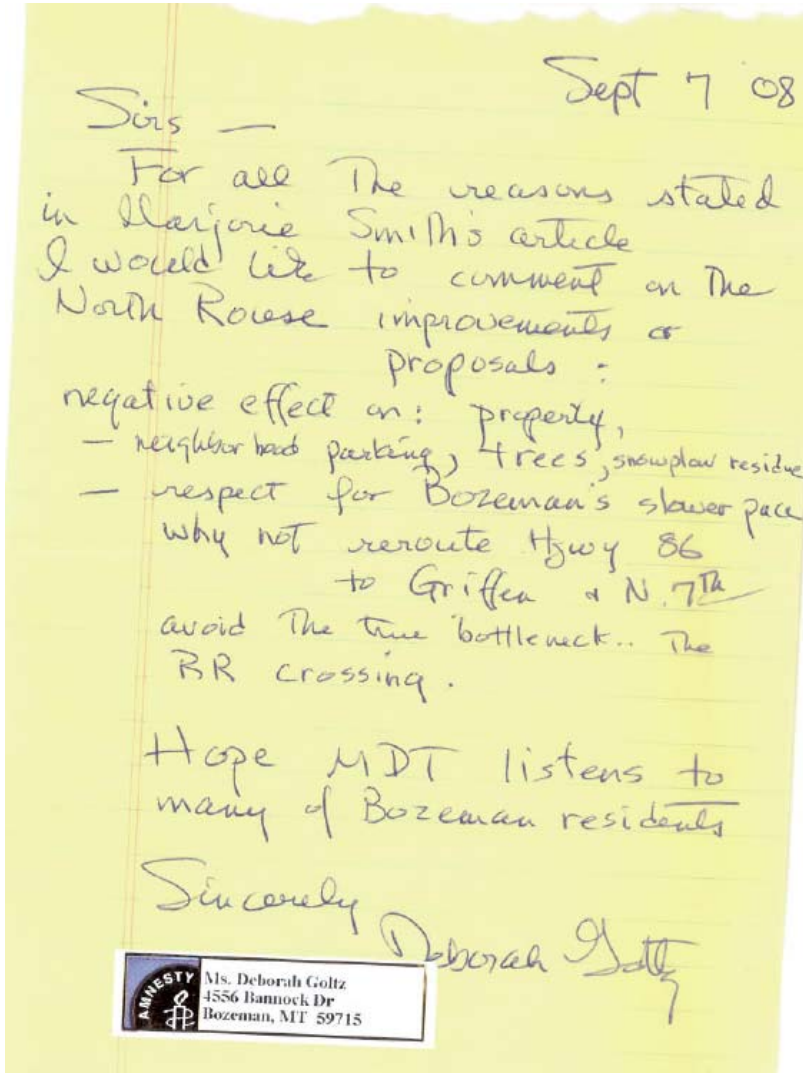 Sept 7 08
Sirs —
For all The reasons stated
in Marjorie Smith's article
I would like to comment on The
North Rouse improvements or
proposals :
negative effect on: property,
— neighborhood parking, trees, snowplow residue
— respect for Bozeman's slower pace
why not reroute Hgwy 86
to Griffen & N. 7Th
avoid The true bottleneck.. The
RR crossing.
Hope MDT listens to
many of Bozeman residents
Sincerely
Deborah Goltz
AMNESTY
Ms. Deborah Goltz
4556 Bannock Dr
Bozeman, MT 59715